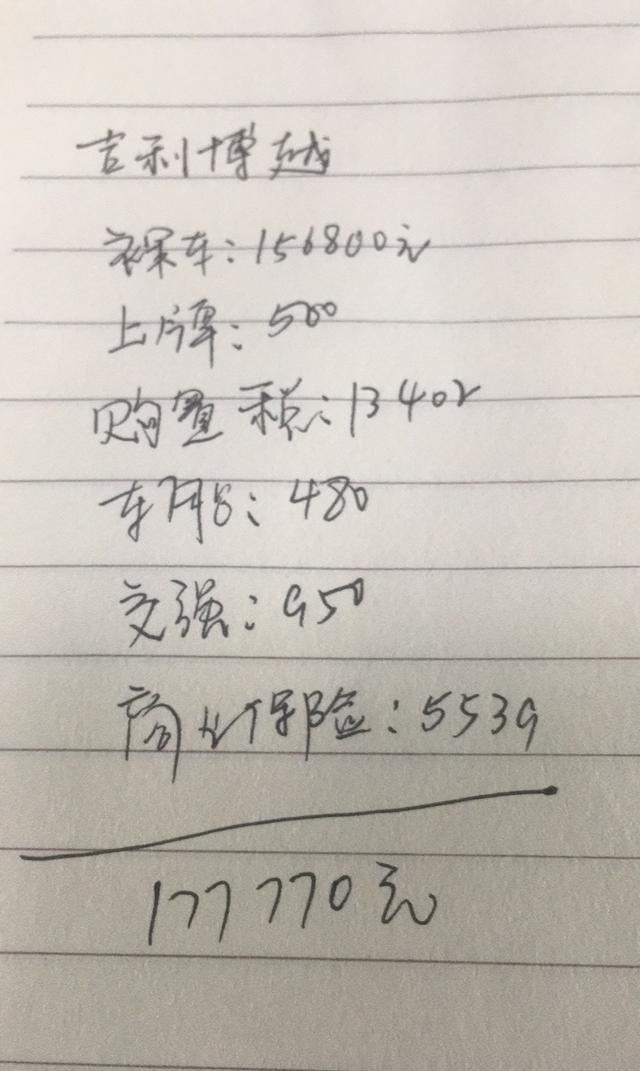 吉利博越
裸车：156800元
上牌：500
购置税：13402
车船：480
交强：950
商业保险：5539
177770元